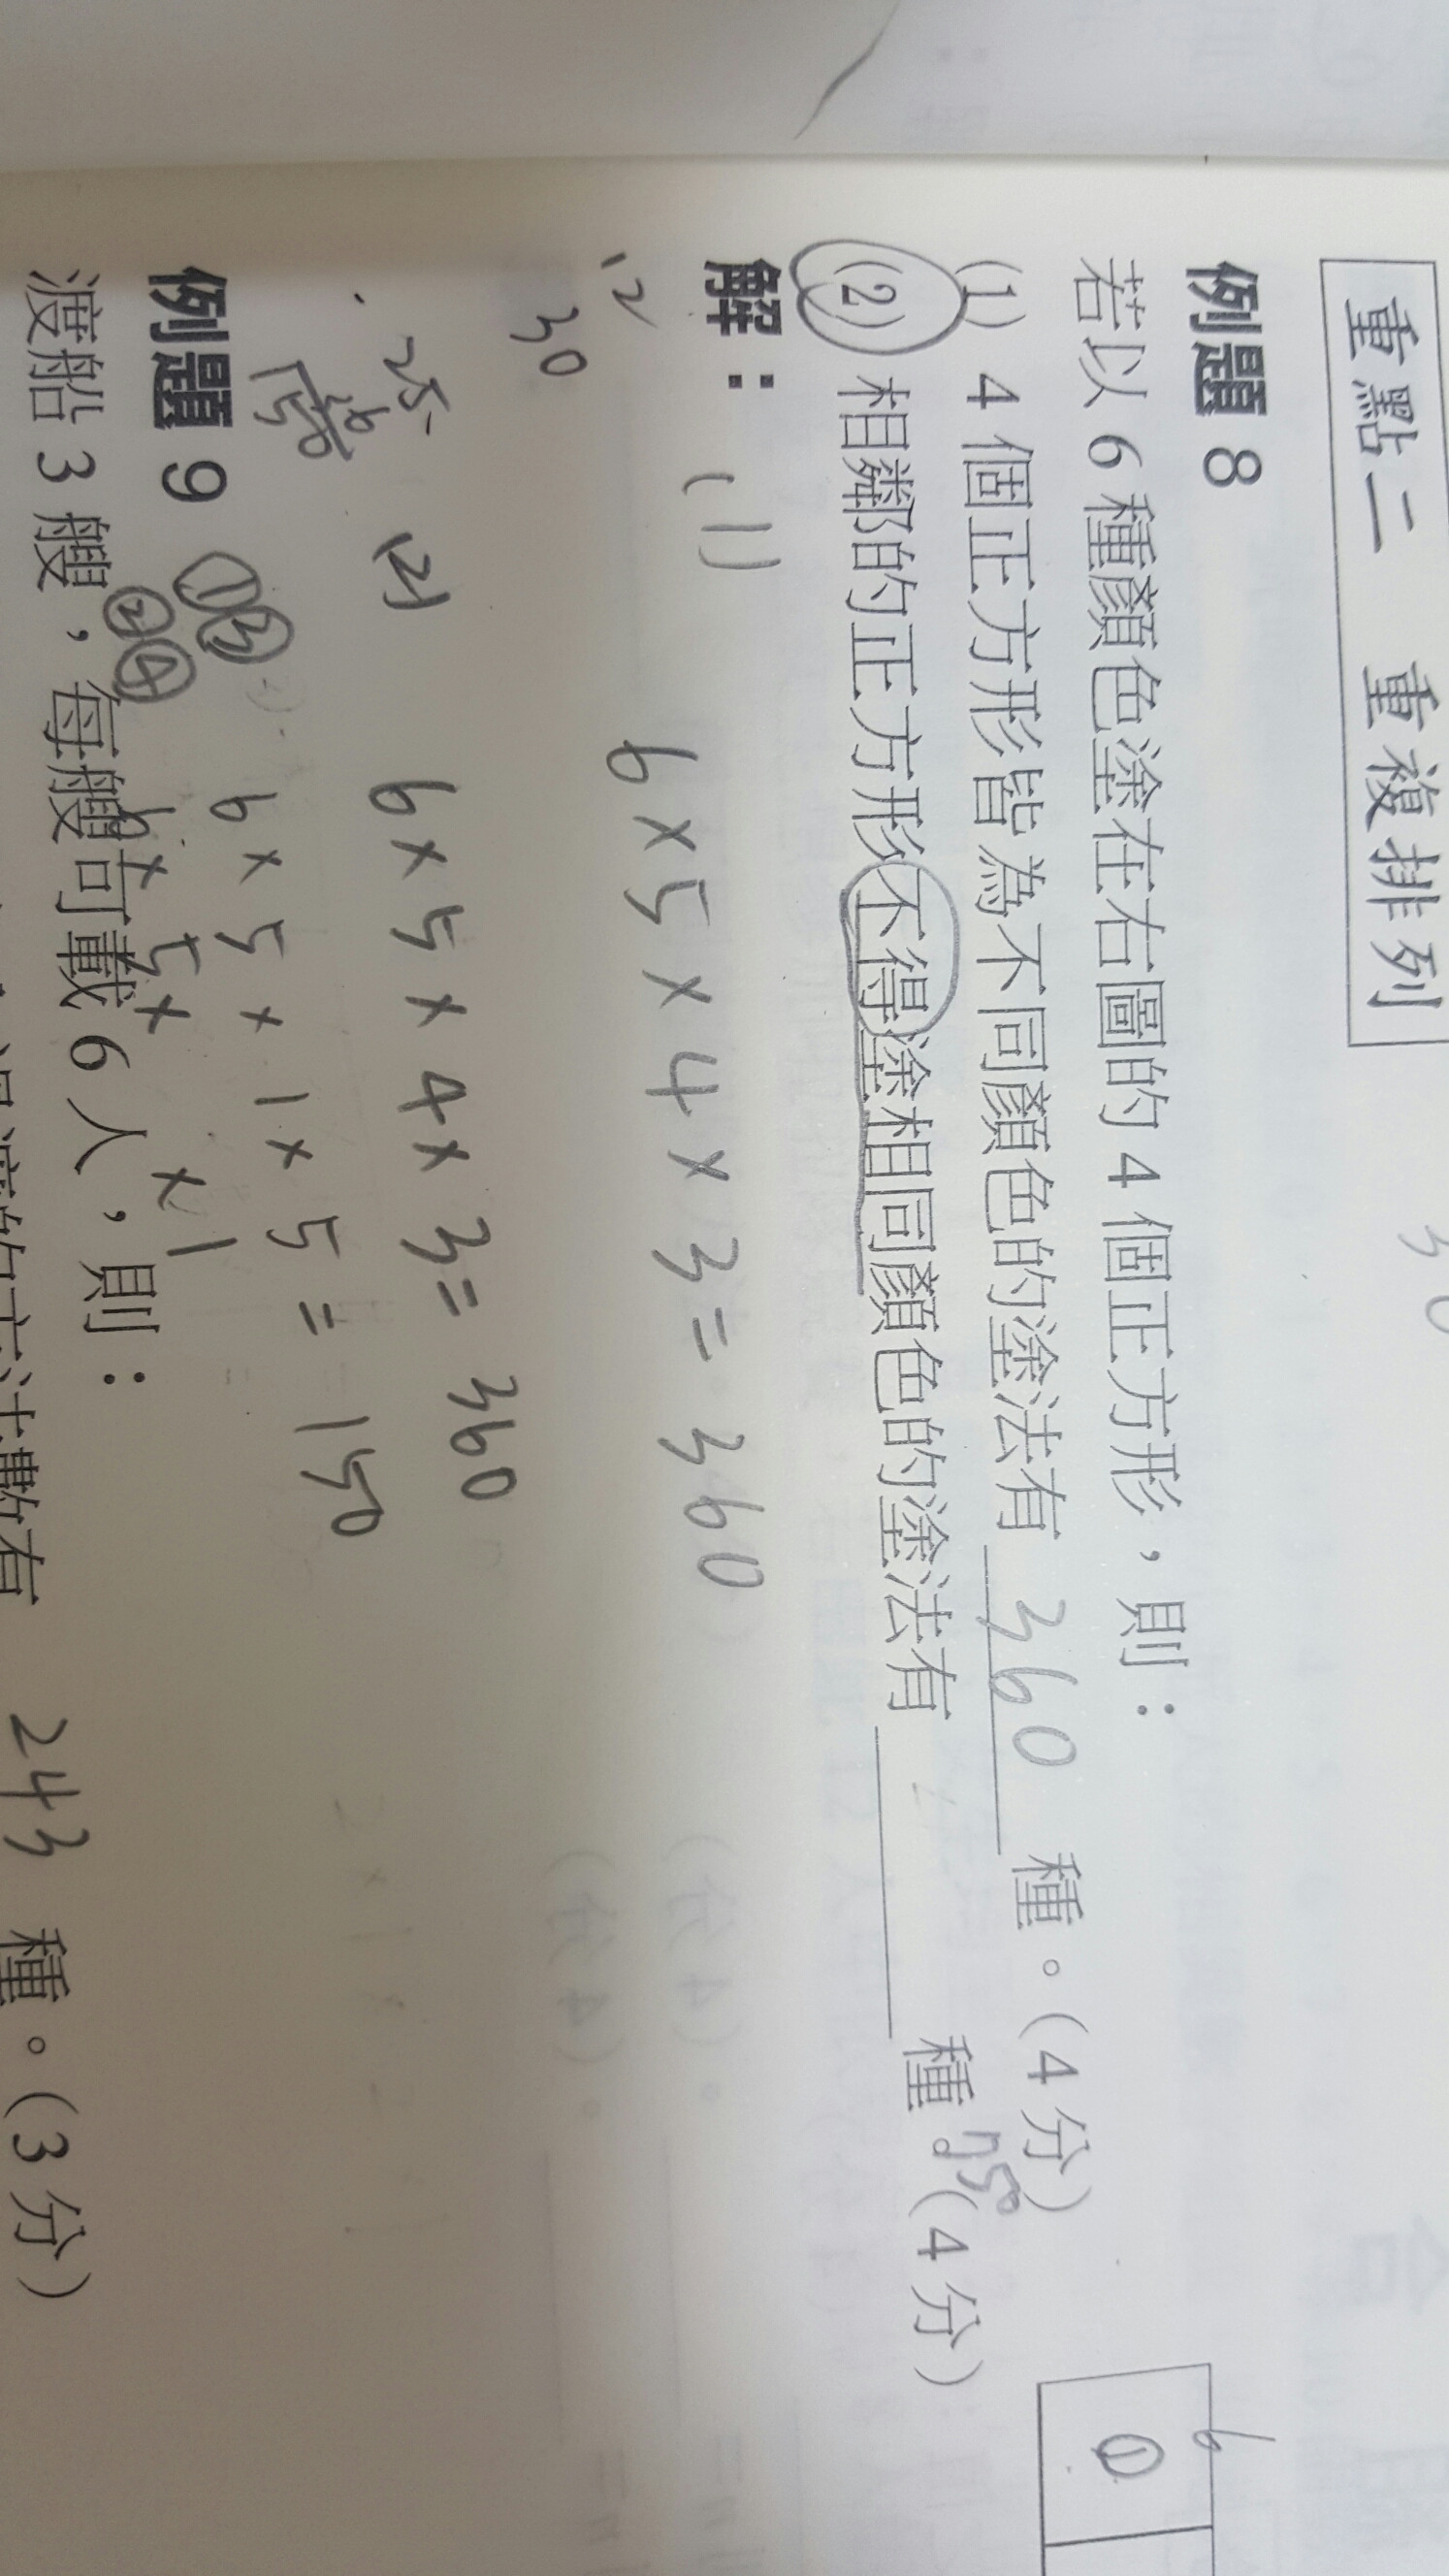 重點二 重複排列
30
例題 8
若以 6 種顏色塗在右圖的 4 個正方形，則：
(1) 4 個正方形皆為不同顏色的塗法有 360 種。(4 分)
(2) 相鄰的正方形不得塗相同顏色的塗法有 種。(4 分)
750
6
①
解： (1) 6×5×4×3=360
12
30
(2) 6×5×4×3=360
25
6×5×1×5=150
①③
例題 9
②④
6×5× ×1
渡船 3 艘，每艘可載 6 人，則：
243 種。(3 分)